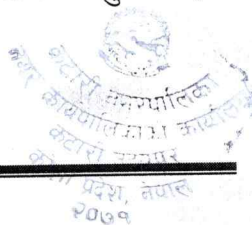 कटारी नगरपालिका
नगर कार्यपालिकाको कार्यालय
कटारी उदयपुर
कोशी प्रदेश, नेपाल
२०७१